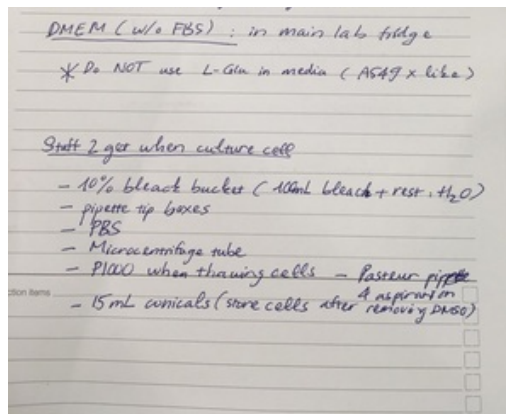 DMEM (w/o FBS) : in main lab fridge
* Do NOT use L-Glu in media (A549 x like)
Stuff 2 get when culture cell
- 10% bleach bucket (100mL bleach + rest, H2O)
- pipette tip boxes
- PBS
- Microcentrifuge tube
- P1000 when thawing cells - Pasteur pipette
4 aspiration
ction items
- 15mL conicals (store cells after removing DMSO)